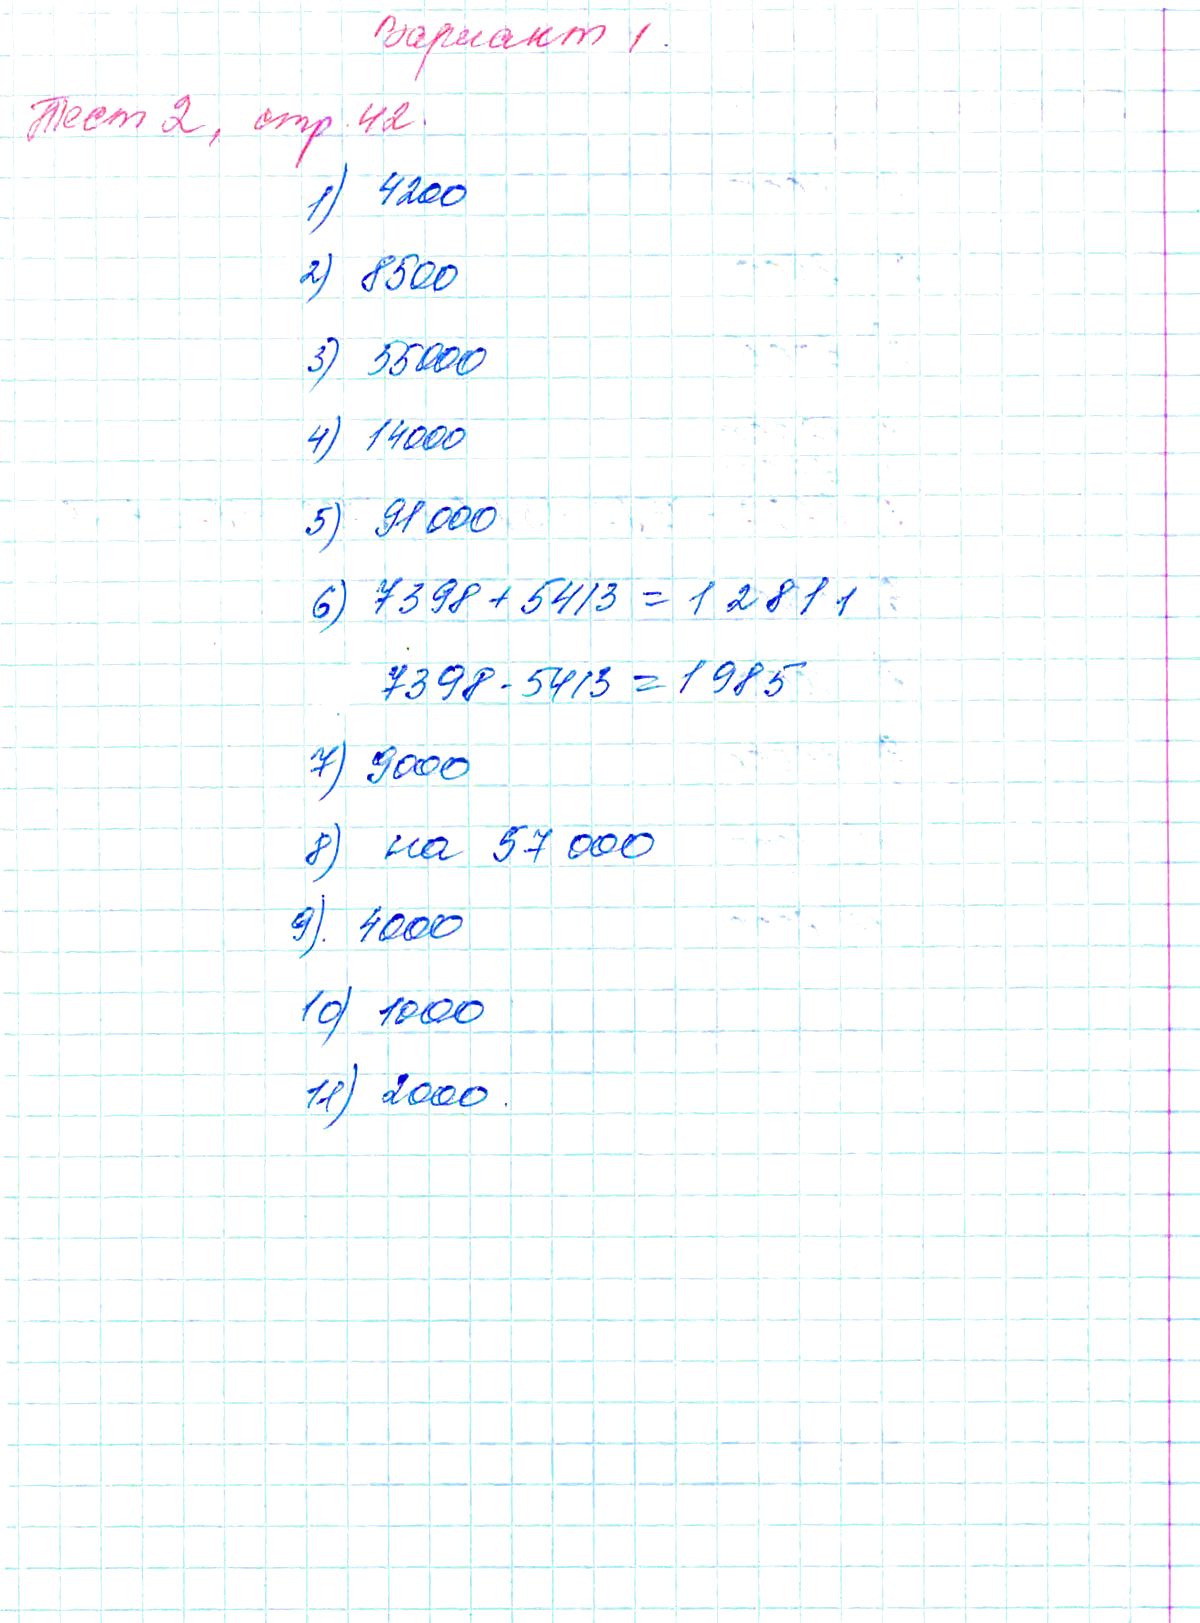 Вариант 1.
Тест 2, стр. 42.
1) 4200
2) 8500
3) 55000
4) 14000
5) 91000
6) 7398 + 5413 = 12811
7398 - 5413 = 1985
7) 9000
8) на 57 000
9). 4000
10) 1000
11) 2000.